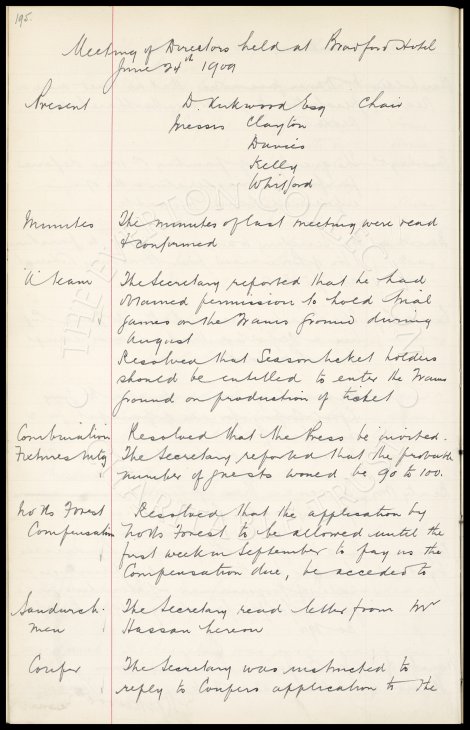 195.
Meeting of Directors held at Bradford Hotel
June 24th 1909
Present D. Kirkwood Esq Chair
Messrs Clayton
Davies
Kelly
Whitford
Minutes The minutes of last meeting were read
& confirmed
'A' team The Secretary reported that he had
obtained permission to hold trial
games on the Trams Ground during
August
Resolved that Season ticket holders
should be entitled to enter the Trams
Ground on production of ticket
Combination Resolved that the Press be invited.
Fixtures Mtg The Secretary reported that the probable
number of guests would be 90 to 100.
Notts Forest Resolved that the application by
Compensation Notts Forest to be allowed until the
first week in September to pay us the
Compensation due, be acceded to
Sandwich- The Secretary read letter from Mr
men Hassan hereon
Coupér The Secretary was instructed to
reply to Coupers application to the